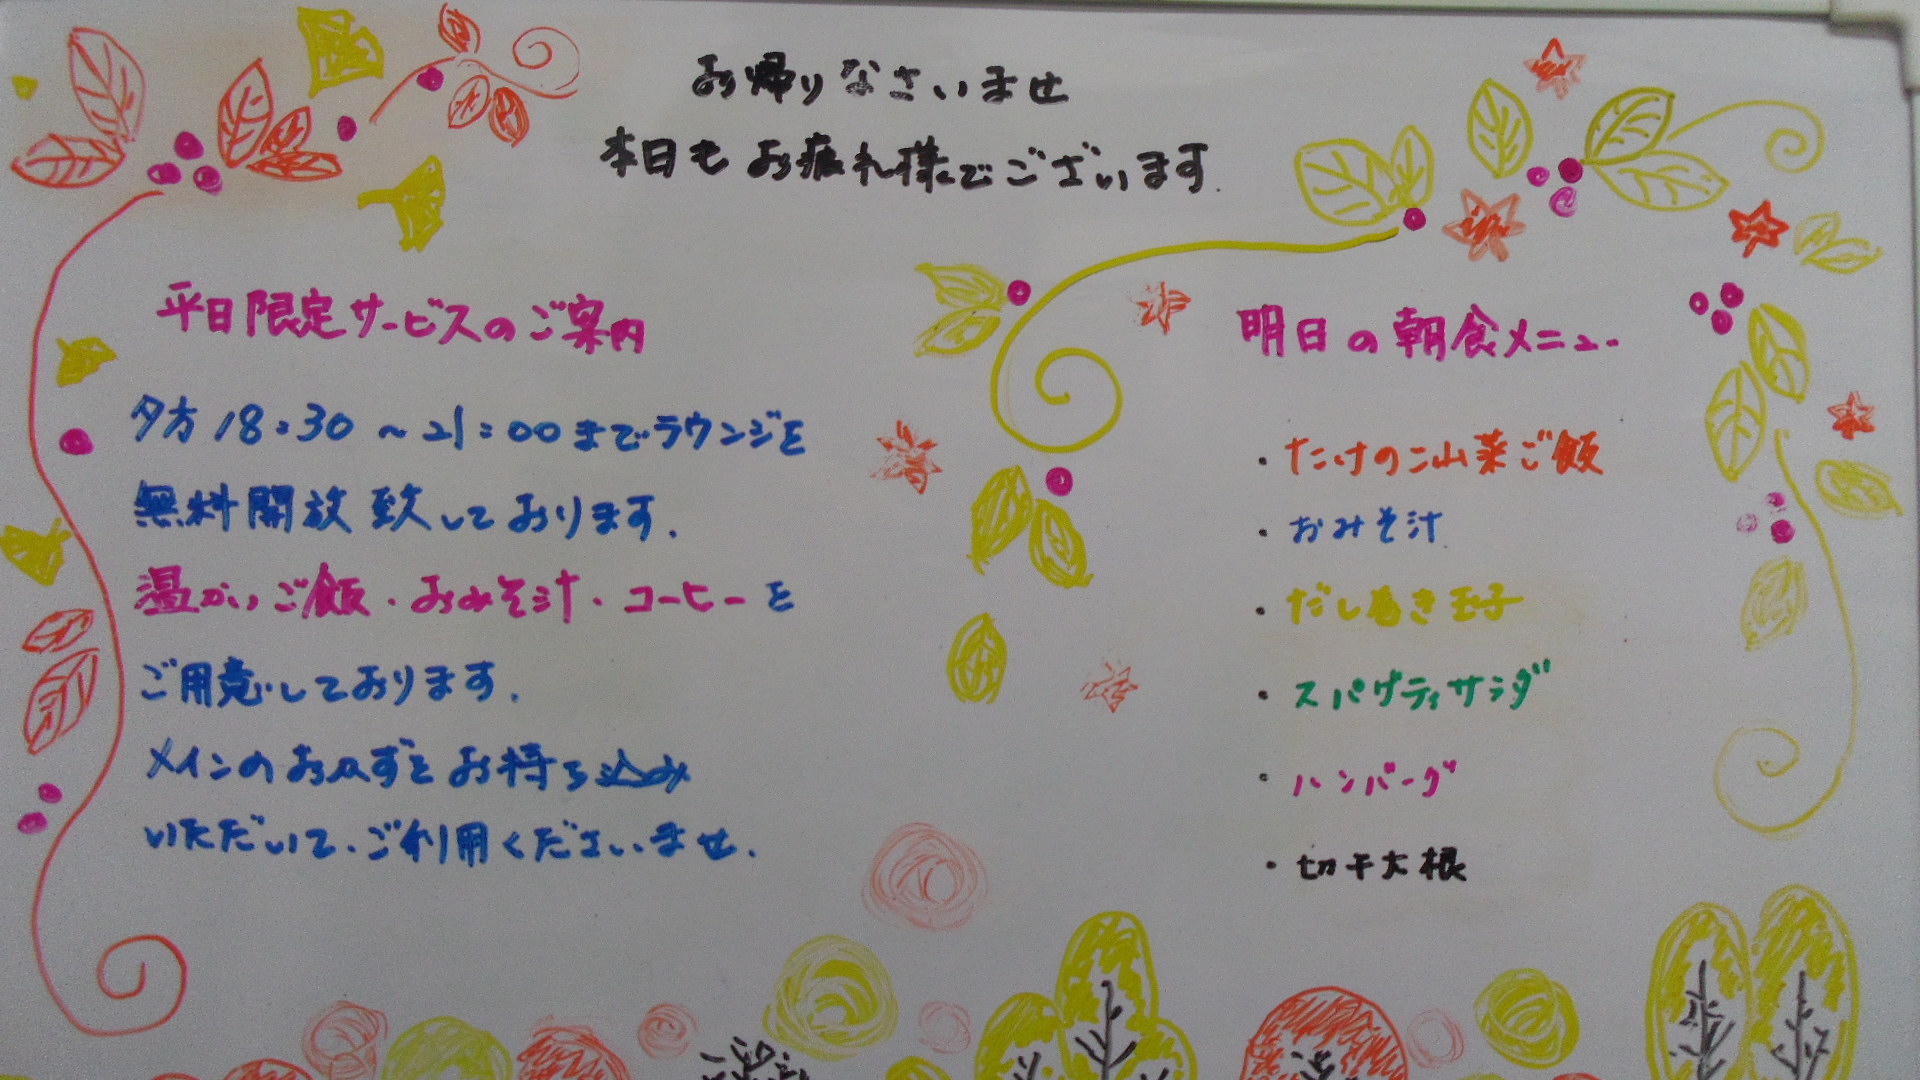 お帰りなさいませ
本日もお疲れ様でございます.
平日限定サービスのご案内
夕方18:30〜21:00までラウンジを
無料開放致しております.
温かいご飯・おみそ汁・コーヒーを
ご用意しております.
メインのおかずをお持ち込み
いただいて、ご利用くださいませ.
明日の朝食メニュー
・たけのこ山菜ご飯
・おみそ汁
・だし巻き玉子
・スパゲティサラダ
・ハンバーグ
・切干大根